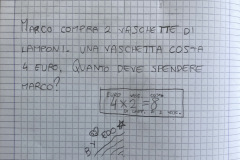 MARCO COMPRA 2 VASCHETTE DI
LAMPONI. UNA VASCHETTA COSTA
4 EURO, QUANTO DEVE SPENDERE
MARCO?
EURO VASC. COSTO
4×2=8
DI LAMP. E 2 VASC.
BY